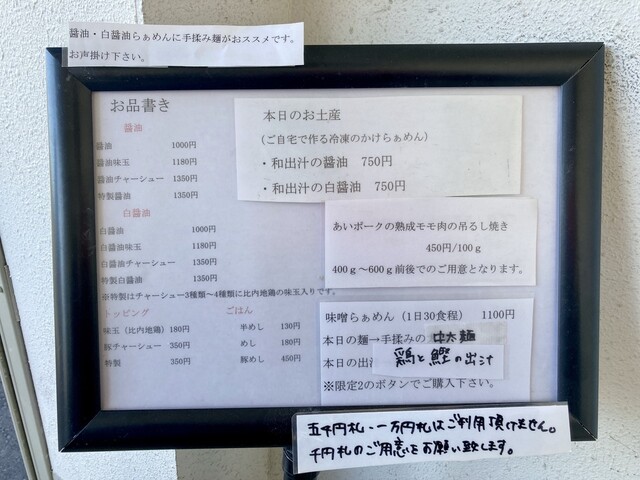 醤油・白醤油らぁめんに手揉み麺がおススメです。
お声掛け下さい。
お品書き
醤油
醤油 1000円
醤油味玉 1180円
醤油チャーシュー 1350円
特製醤油 1350円
白醤油
白醤油 1000円
白醤油味玉 1180円
白醤油チャーシュー 1350円
特製白醤油 1350円
※特製はチャーシュー3種類～4種類に比内地鶏の味玉入りです。
トッピング
味玉（比内地鶏）180円
豚チャーシュー 350円
特製 350円
ごはん
半めし 130円
めし 180円
豚めし 450円
本日のお土産
(ご自宅で作る冷凍のかけらぁめん)
・和出汁の醤油 750円
・和出汁の白醤油 750円
あいポークの熟成モモ肉の吊るし焼き
450円/100ｇ
400ｇ～600ｇ前後でのご用意となります。
味噌らぁめん（1日30食程） 1100円
本日の麺→手揉みの 中太麺
本日の出汁 鶏と鰹の出汁
※限定2のボタンでご購入下さい。
五千円札・一万円札はご利用頂けません。
千円札のご用意をお願い致します。